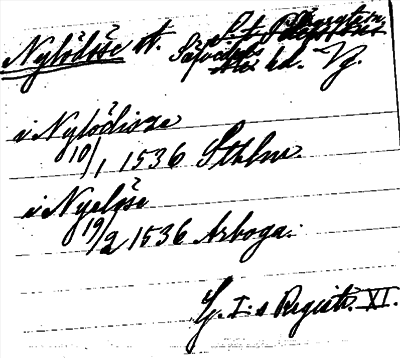 Nylödöse st.
Sävedals hd. Vg.
i Nylödisze
10/1 1536 Sthlm.
i Nyeløse
19/2 1536 Arboga.
G. I:s Registr. XI.